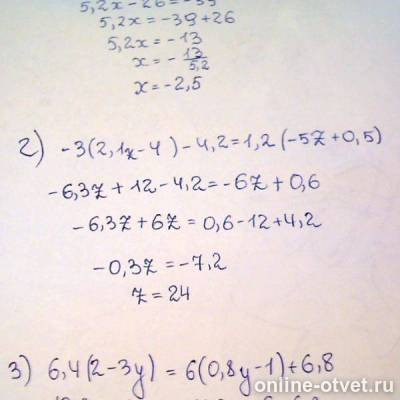 5,2x-26=-39
5,2x=-39+26
5,2x=-13
x=-13/5,2
x=-2,5
2) -3(2,1z-4)-4,2=1,2(-5z+0,5)
-6,3z+12-4,2=-6z+0,6
-6,3z+6z=0,6-12+4,2
-0,3z=-7,2
z=24
3) 6,4(2-3y)=6(0,8y-1)+6,8
online-otvet.ru